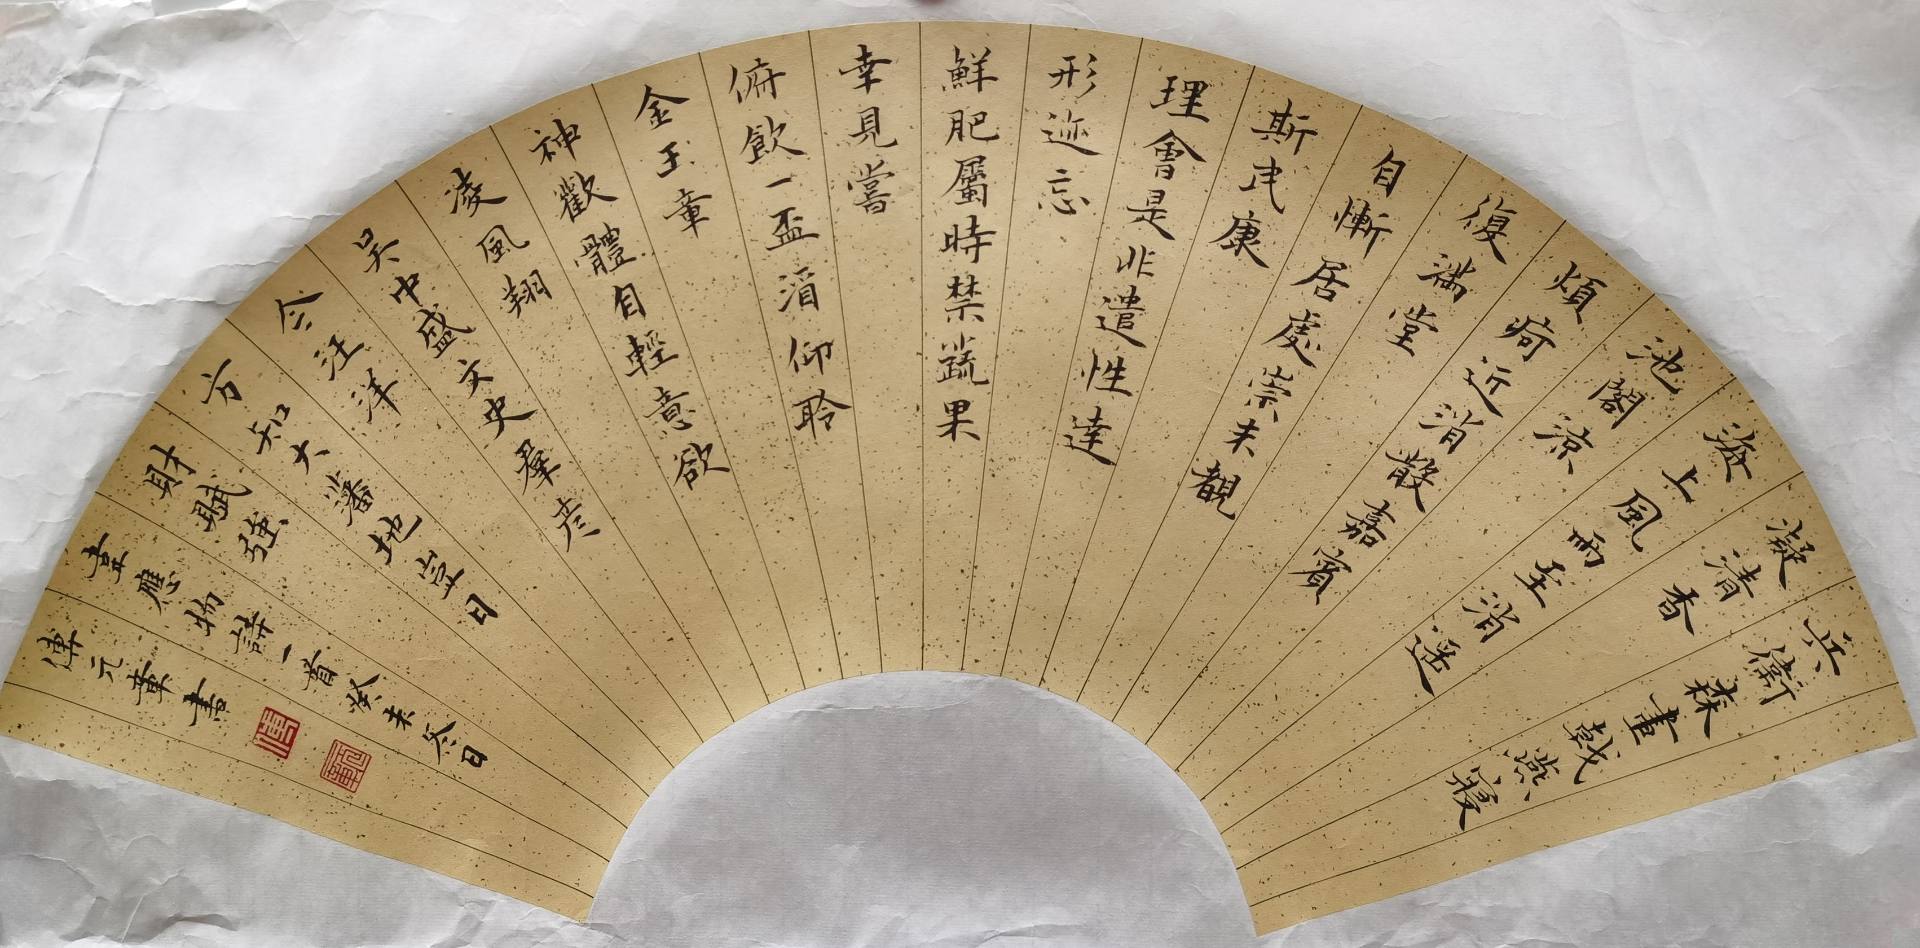 兵衛森畫戟燕寢
凝清香
海上風雨至消遥
池閣涼
煩疴近消散嘉賓
復滿堂
自慚居處崇未覩
斯民康
理會是非遣性達
形迹忘
鮮肥屬時禁蔬果
幸見嘗
俯飲一盃酒仰聆
金玉章
神歡體自輕意欲
凌風翔
吳中盛文史羣彦
今汪洋
方知大藩地豈曰
財賦強
韋應物詩一首癸未冬日
傅元書
傅